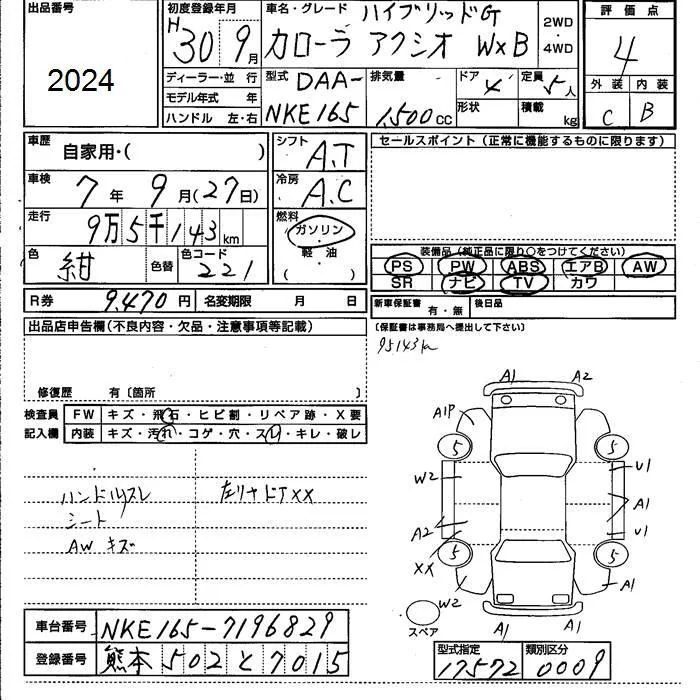 出品番号
2024
初度登録年月
H30 9月
車名・グレード ハイブリッドG
カローラ アクシオ W×B
2WD
・
4WD
評価点
4
外装 内装
C B
ディーラー・並 行
モデル年式 年
ハンドル 左・右
型式 DAA-
NKE165
排気量
1,500cc
ドア 4
形状
定員 5人
積載 kg
車歴
自家用・( )
車検
7年 9月(27日)
走行
9万5千143km
色
紺
色替
色コード
221
シフト
A.T
冷房
A.C
燃料
ガソリン
・軽油・
( )
セールスポイント (正常に機能するものに限ります)
装備品 (純正品に限り○をつけてください)
PS PW ABS エアB AW
SR ナビ TV カワ
R券 9,470円 名変期限 月 日
新車保証書 有・無 後日品
(保証書は事務局へ提出して下さい)
95143k
出品店申告欄(不良内容・欠品・注意事項等記載)
修復歴 有〔箇所 〕
検査員 FW キズ・飛石・ヒビ割・リペア跡・X要
記入欄 内装 キズ・汚れ・コゲ・穴・スレ・キレ・破レ
ハンドルスレ 左リヤドアXX
シート
AW キズ
A1 A2
A1P
5 5
W2 U1
A1
A2 U1
XX 5 5
W2 A1
スペア
A1 A1
車台番号 NKE165-7196829
登録番号 熊本 502 と 7015
型式指定 類別区分
17572 0009